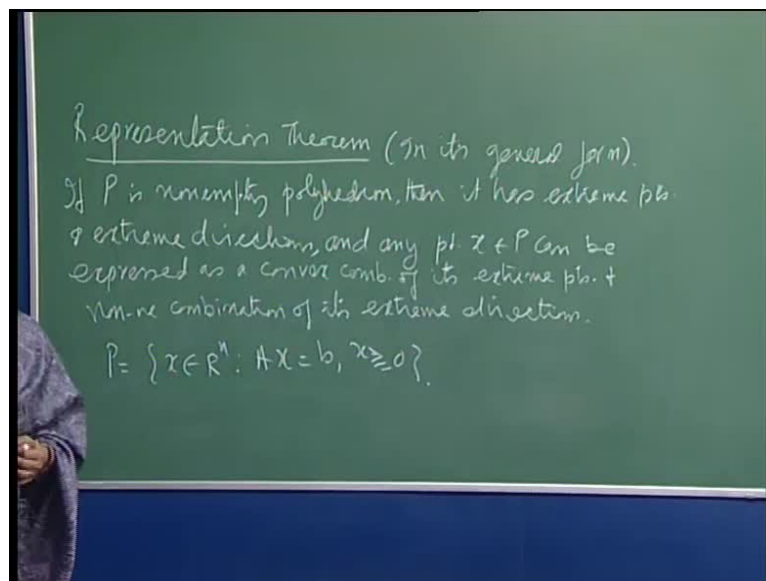 Representation Theorem (In its general form).
If P is nonempty polyhedron, then it has extreme pts.
& extreme directions, and any pt. x ∈ P can be
expressed as a convex comb. of its extreme pts. +
non-ne combination of its extreme direction.
P = {x ∈ R^n : AX = b, x ≥ 0}.